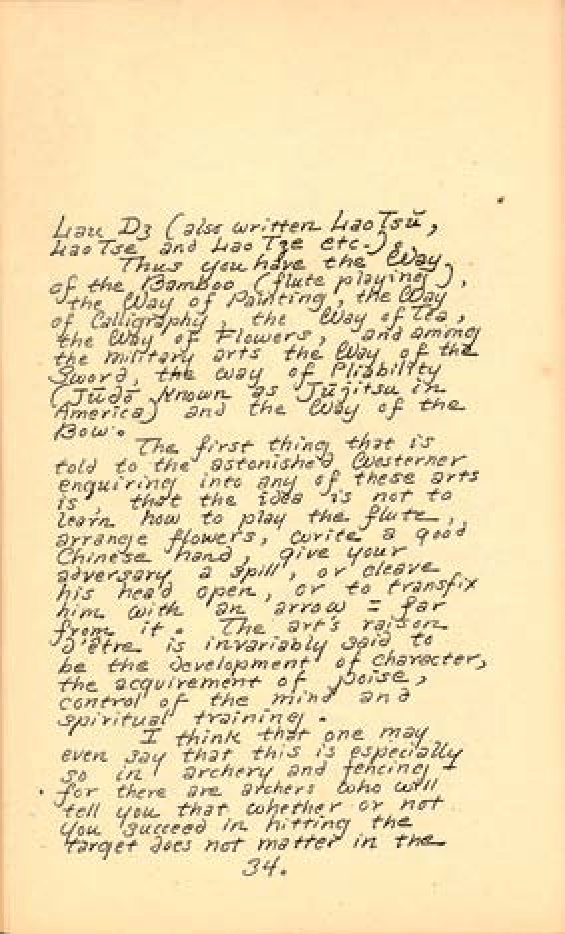 Lau Dz (also written Lao Tsŭ,
Lao Tse and Lao Tze etc.).
Thus you have the Way
of the Bamboo (flute playing),
the Way of Painting, the Way
of Calligraphy, the Way of Tea,
the Way of Flowers, and among
the military arts the Way of the
Sword, the way of Pliability
(Jūdō known as Jūjitsu in
America) and the Way of the
Bow.
The first thing that is
told to the astonished Westerner
enquiring into any of these arts
is, that the idea is not to
learn how to play the flute,
arrange flowers, write a good
Chinese hand, give your
adversary a spill, or cleave
his head open, or to transfix
him with an arrow = far
from it. The art's raison
d'être is invariably said to
be the development of character,
the acquirement of poise,
control of the mind and
spiritual training.
I think that one may
even say that this is especially
so in archery and fencing -
for there are archers who will
tell you that whether or not
you succeed in hitting the
target does not matter in the
34.